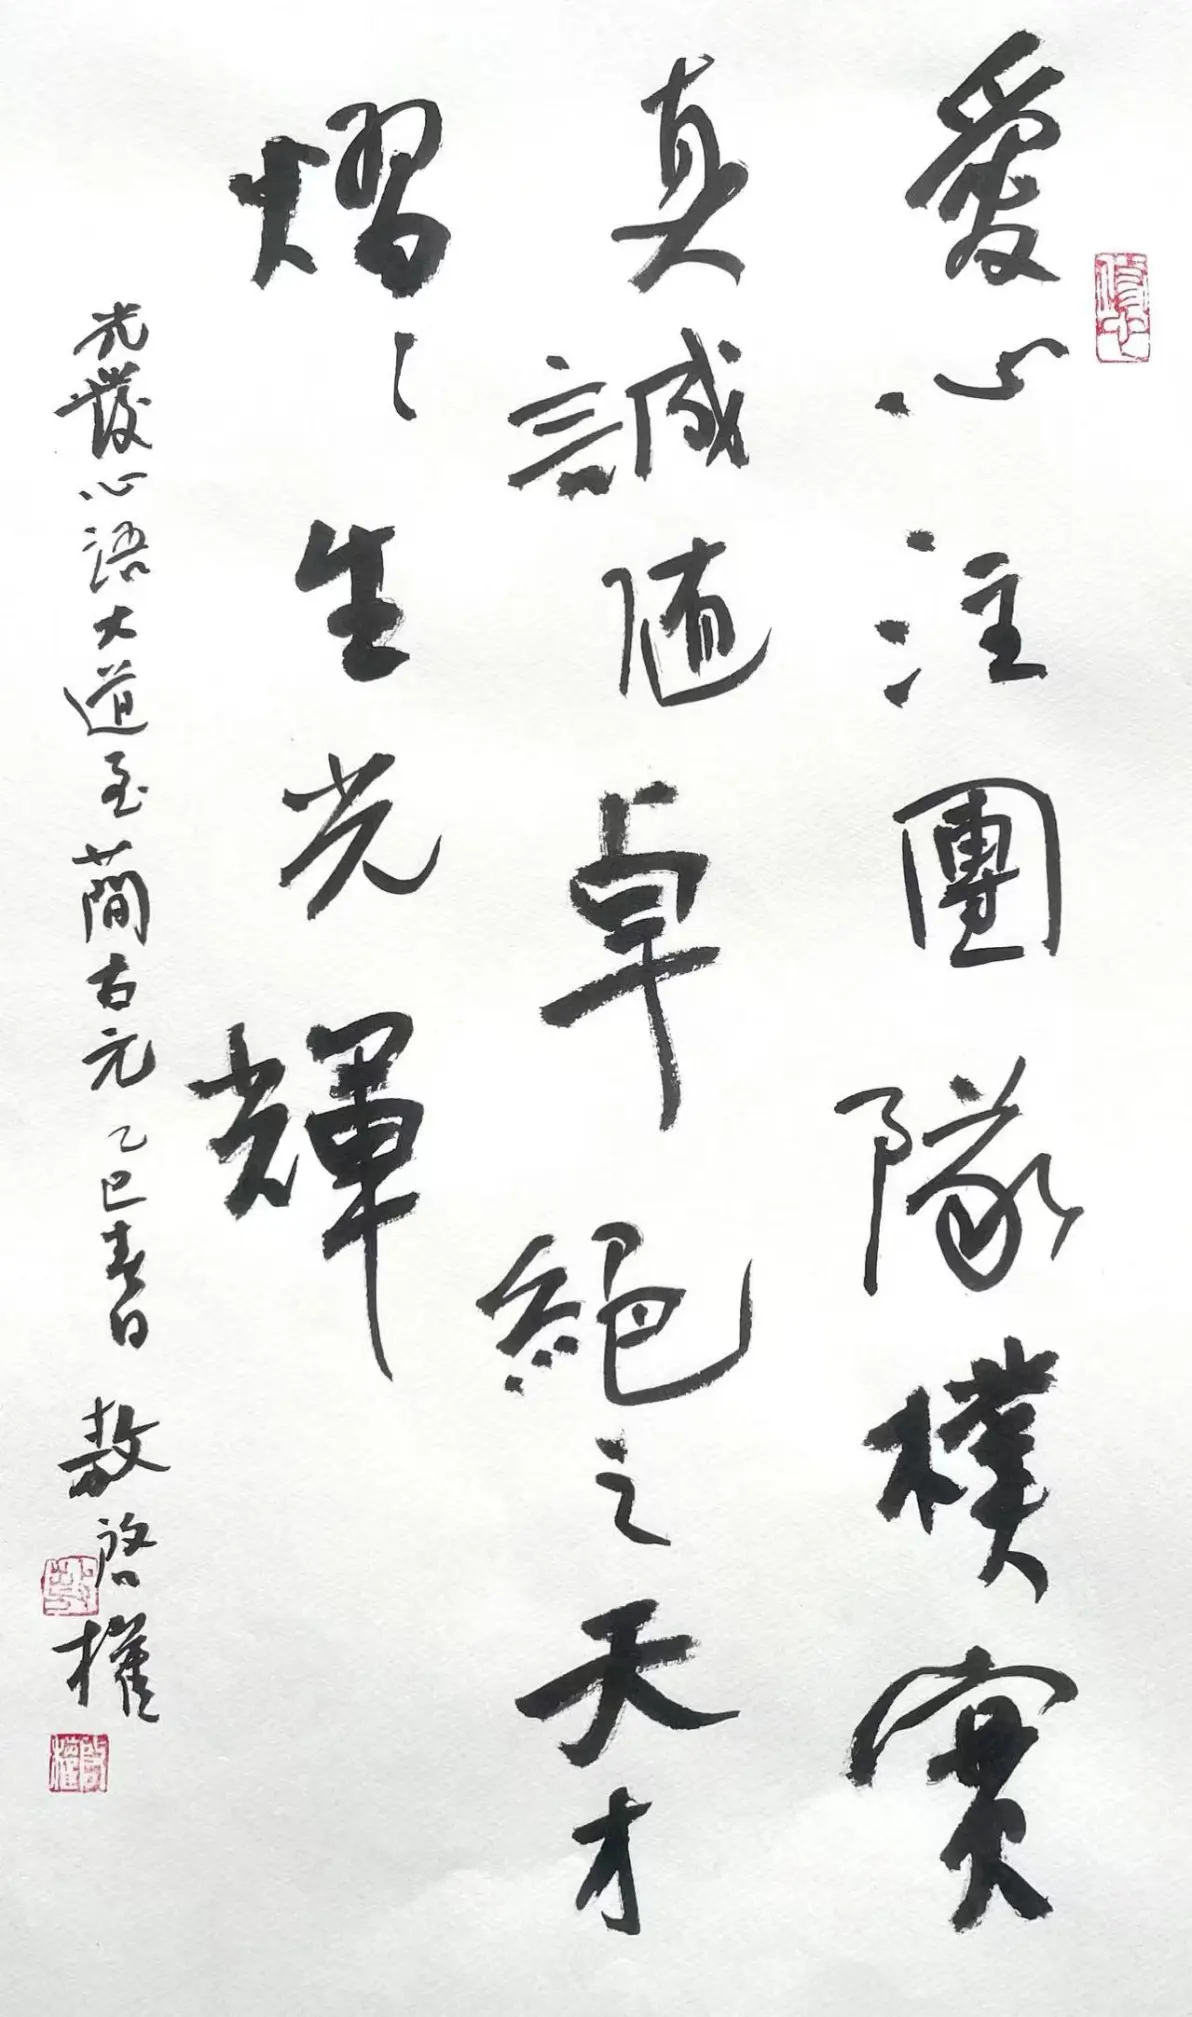 愛心注團隊樸實
真誠隨卓絕之天才
熠〻生光輝
光發心語大道至簡古元乙巳春日
敖啓權